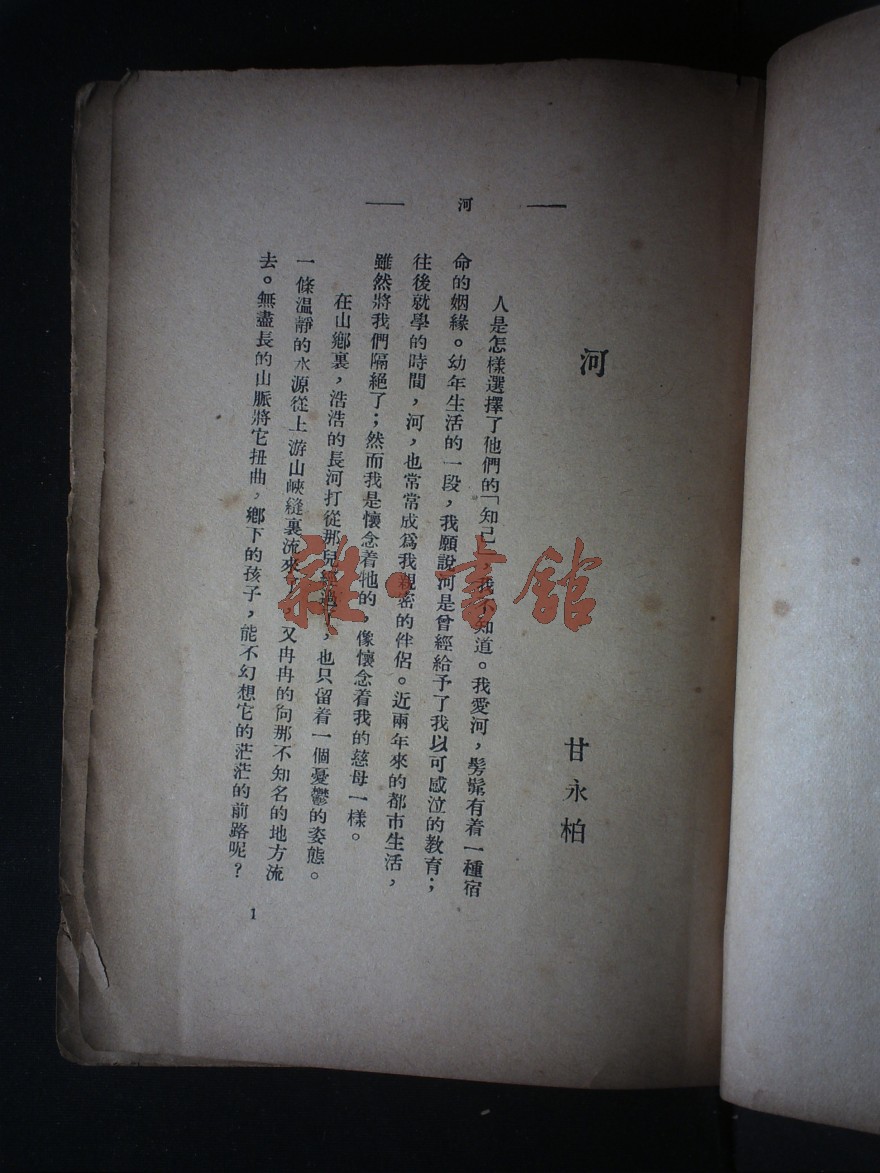 河
河
甘永柏
人是怎樣選擇了他們的「知己」，我不知道。我愛河，髣髴有着一種宿
命的姻緣。幼年生活的一段，我願說河是曾經給予了我以可感泣的教育；
往後就學的時間，河，也常常成爲我親密的伴侶。近兩年來的都市生活，
雖然將我們隔絕了；然而我是懷念着牠的，像懷念着我的慈母一樣。
在山鄉裏，浩浩的長河打從那兒經過了，也只留着一個憂鬱的姿態。
一條溫靜的水源從上游山峽縫裏流來，又冉冉的向那不知名的地方流
去。無盡長的山脈將它扭曲，鄉下的孩子，能不幻想它的茫茫的前路呢？
1
雜·書館